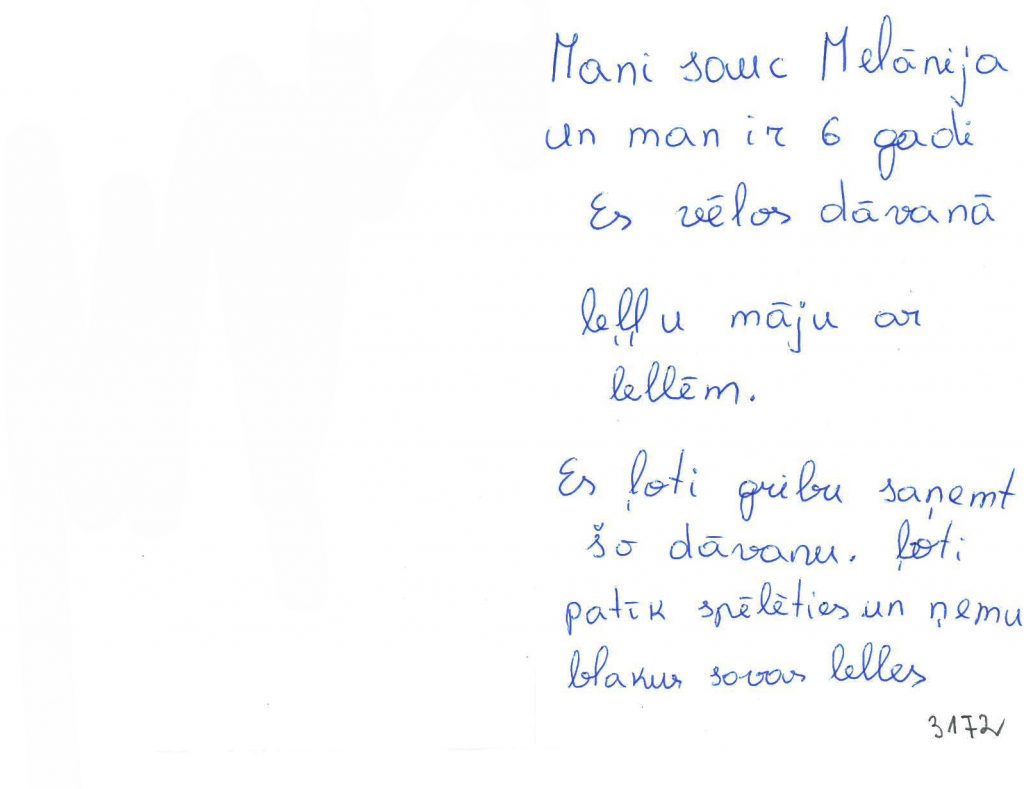 Mani sauc Melānija
un man ir 6 gadi
Es vēlos dāvanā
leļļu māju ar
lellēm.
Es ļoti gribu saņemt
šo dāvanu. ļoti
patīk spēlēties un ņemu
blakus sovas lelles
3172